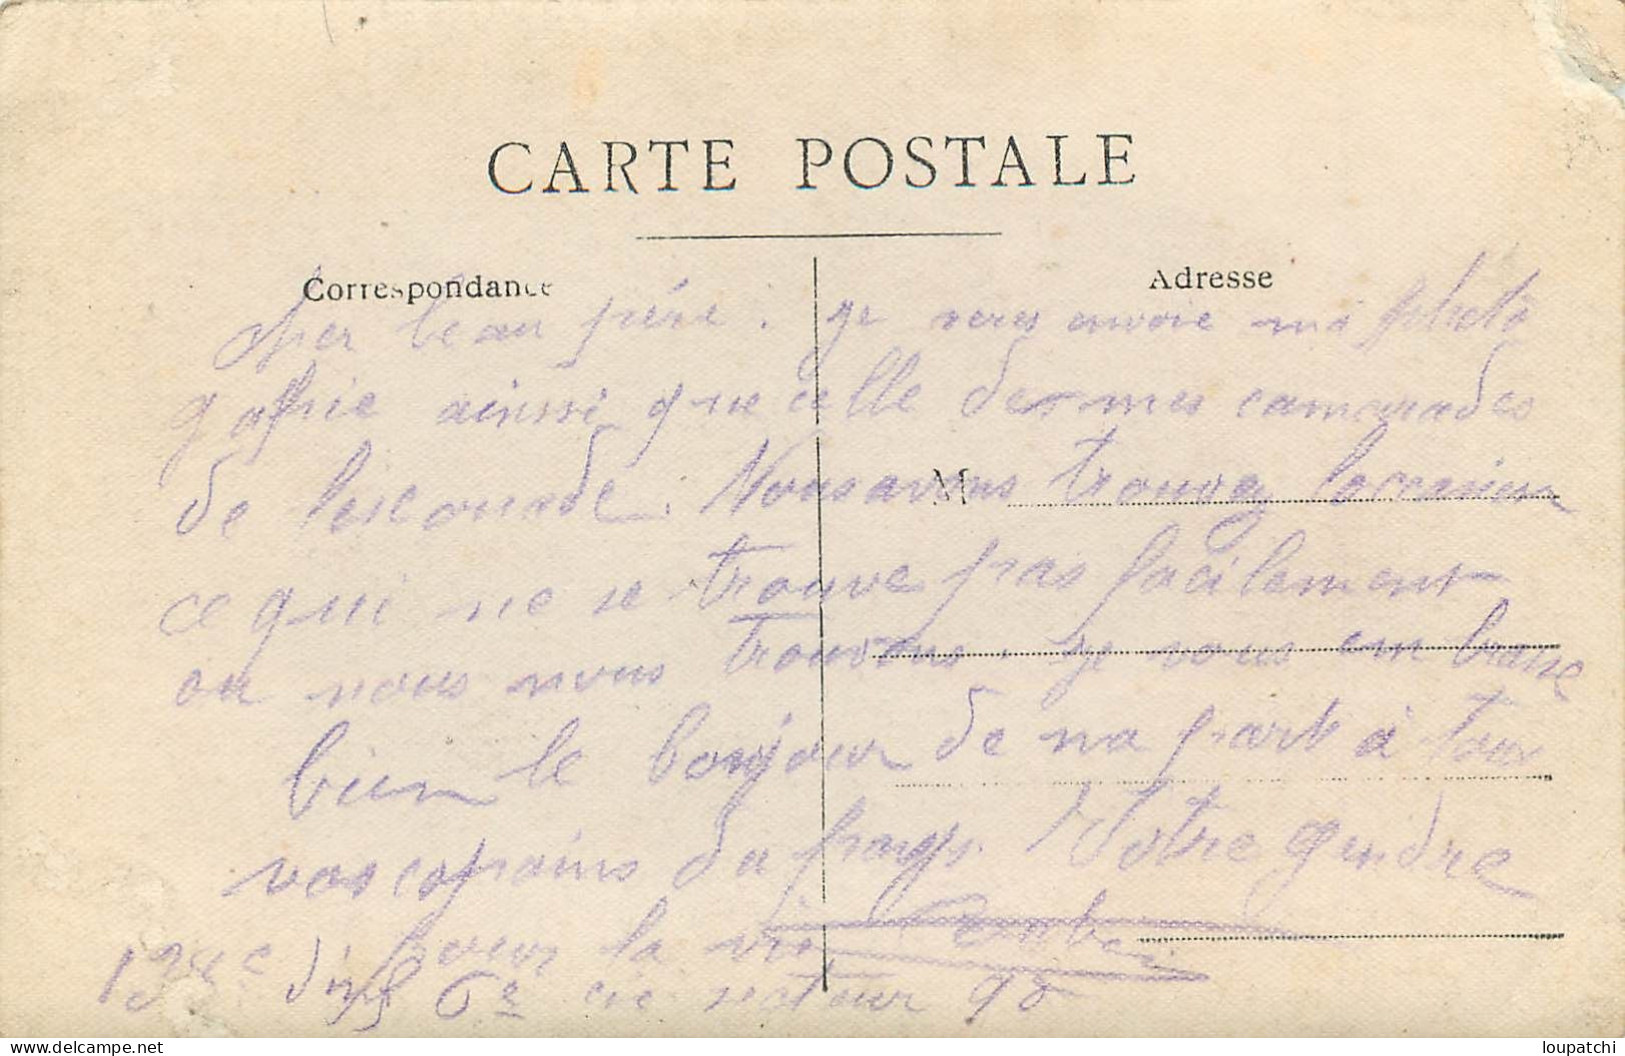 CARTE POSTALE
Correspondance
Adresse
M
cher beau père. ge vous envoie ma photo
gafrie ainssi que celle de mes camarades
de lescouade. Nous avons trouvez locasion
ce qui ne se trouve pas facilement
ou nous nous trouvons. ge vous embrasse
bien le bonjour de ma part à tous
vos copains du pays. Votre gendre
pour la vie
6e cie secteur 98
loupatchi